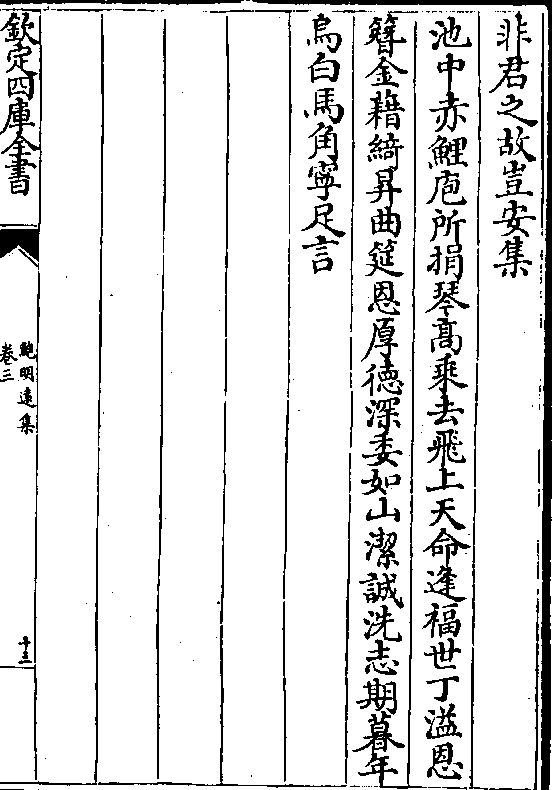 非君之故豈安集
池中赤鯉庖所捐琴高乗去飛上天命逢福世丁溢恩
簪金藉綺昇曲筵恩厚徳深委如山潔誠洗志期暮年
烏白馬角寧足言
欽定四庫全書
鮑明遠集
卷三
十三